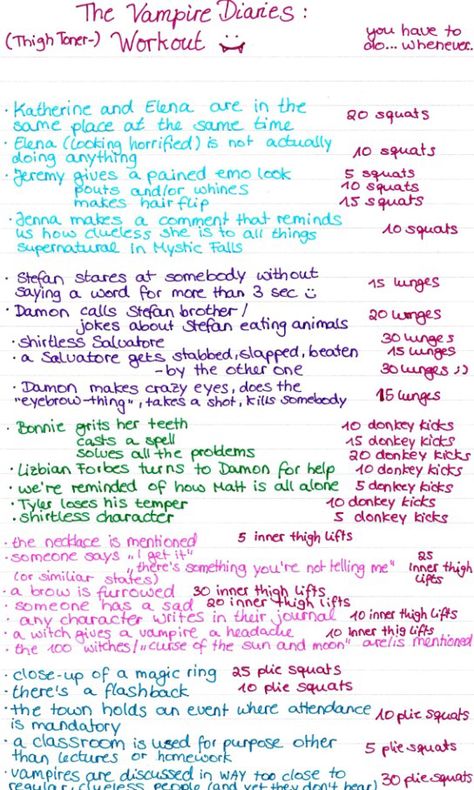 The Vampire Diaries :
(Thigh Toner-) Workout
you have to
do... whenever.
· Katherine and Elena are in the
same place at the same time 20 squats
· Elena (looking horrified) is not actually
doing anything 10 squats
· Jeremy gives a pained emo look 5 squats
pouts and/or whines 10 squats
makes hair flip 15 squats
· Jenna makes a comment that reminds
us how clueless she is to all things 10 squats
supernatural in Mystic Falls
· Stefan stares at somebody without
saying a word for more than 3 sec 15 lunges
· Damon calls Stefan brother/
jokes about Stefan eating animals 20 lunges
· shirtless Salvatore 30 lunges
· a Salvatore gets stabbed, slapped, beaten 15 lunges
- by the other one 30 lunges ;)
· Damon makes crazy eyes, does the
"eyebrow-thing", takes a shot, kills somebody 15 lunges
· Bonnie grits her teeth 10 donkey kicks
casts a spell 15 donkey kicks
solves all the problems 20 donkey kicks
· Lizbian Forbes turns to Damon for help 10 donkey kicks
· we're reminded of how Matt is all alone 5 donkey kicks
· Tyler loses his temper 10 donkey kicks
· shirtless character 5 donkey kicks
· the necklace is mentioned 5 inner thigh lifts
· someone says "I get it" 25
"there's something you're not telling me" inner thigh
(or similiar states) lifts
· a brow is furrowed 30 inner thigh lifts
· someone has a sad 20 inner thigh lifts
· any character writes in their journal 10 inner thigh lifts
· a witch gives a vampire a headache 10 inner thig lifts
· the 100 witches/"curse of the sun and moon" are/is mentioned
· close-up of a magic ring 25 plie squats
· there's a flashback 10 plie squats
· the town holds an event where attendance
is mandatory 10 plie squats
· a classroom is used for purpose other
than lectures or homework 5 plie squats
· vampires are discussed in WAY too close to
regular, clueless people (and yet they don't hear) 30 plie squats